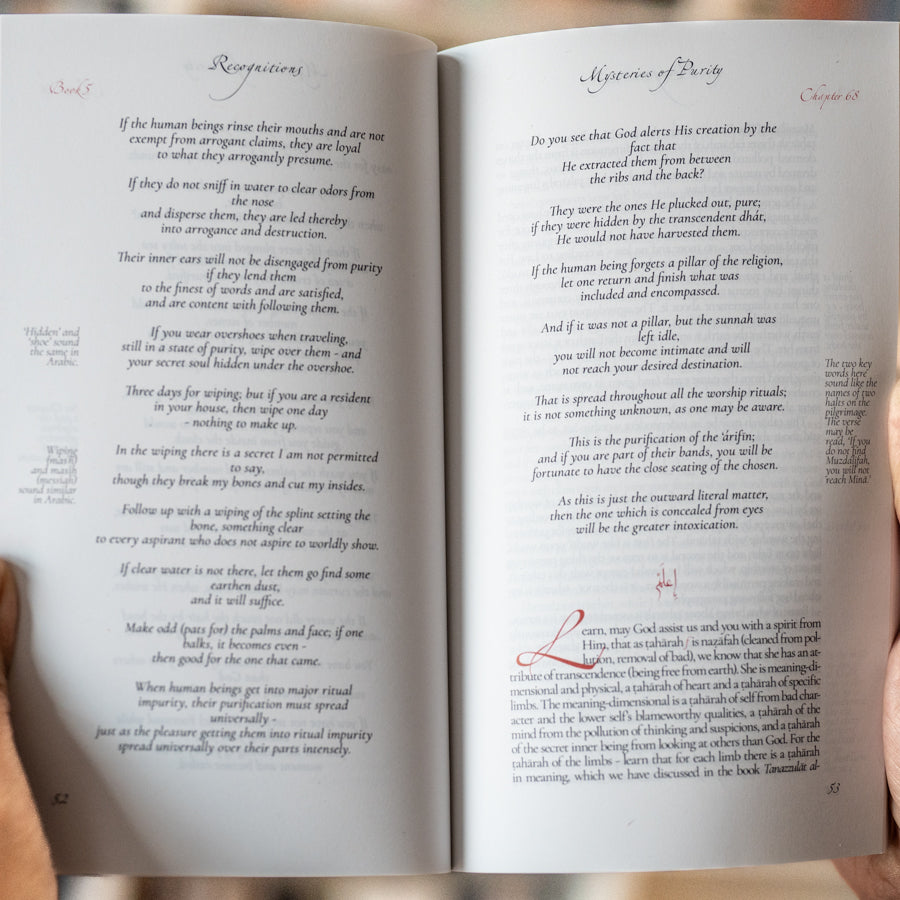 Recognitions
Book 5
If the human beings rinse their mouths and are not
exempt from arrogant claims, they are loyal
to what they arrogantly presume.
If they do not sniff in water to clear odors from
the nose
and disperse them, they are led thereby
into arrogance and destruction.
Their inner ears will not be disengaged from purity
if they lend them
to the finest of words and are satisfied,
and are content with following them.
If you wear overshoes when traveling,
still in a state of purity, wipe over them - and
your secret soul hidden under the overshoe.
'Hidden' and
'shoe' sound
the same in
Arabic.
Three days for wiping; but if you are a resident
in your house, then wipe one day
- nothing to make up.
In the wiping there is a secret I am not permitted
to say,
though they break my bones and cut my insides.
Wiping
(masḥ)
and masīḥ
(messiah)
sound similar
in Arabic.
Follow up with a wiping of the splint setting the
bone, something clear
to every aspirant who does not aspire to worldly show.
If clear water is not there, let them go find some
earthen dust,
and it will suffice.
Make odd (pats for) the palms and face; if one
balks, it becomes even -
then good for the one that came.
When human beings get into major ritual
impurity, their purification must spread
universally -
just as the pleasure getting them into ritual impurity
spread universally over their parts intensely.
52
Mysteries of Purity
Chapter 68
Do you see that God alerts His creation by the
fact that
He extracted them from between
the ribs and the back?
They were the ones He plucked out, pure;
if they were hidden by the transcendent dhāt,
He would not have harvested them.
If the human being forgets a pillar of the religion,
let one return and finish what was
included and encompassed.
And if it was not a pillar, but the sunnah was
left idle,
you will not become intimate and will
not reach your desired destination.
The two key
words here
sound like the
names of two
halts on the
pilgrimage.
The verse
may be
read, 'If you
do not find
Muzdalifah,
you will not
reach Miná.'
That is spread throughout all the worship rituals;
it is not something unknown, as one may be aware.
This is the purification of the 'ārifīn;
and if you are part of their bands, you will be
fortunate to have the close seating of the chosen.
As this is just the outward literal matter,
then the one which is concealed from eyes
will be the greater intoxication.
إعلم
Learn, may God assist us and you with a spirit from
Him, that as ṭahārah is naẓāfah (cleaned from pol-
lution, removal of bad), we know that she has an at-
tribute of transcendence (being free from earth). She is meaning-di-
mensional and physical, a ṭahārah of heart and a ṭahārah of specific
limbs. The meaning-dimensional is a ṭahārah of self from bad char-
acter and the lower self's blameworthy qualities, a ṭahārah of the
mind from the pollution of thinking and suspicions, and a ṭahārah
of the secret inner being from looking at others than God. For the
ṭahārah of the limbs - learn that for each limb there is a ṭahārah
in meaning, which we have discussed in the book Tanazzulāt al-
53